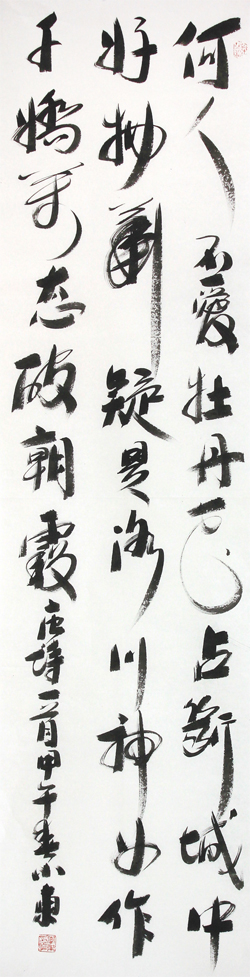 何人不愛牡丹花占斷城中
好物華疑是洛川神女作
千嬌萬态破朝霞唐詩一首甲午春小東